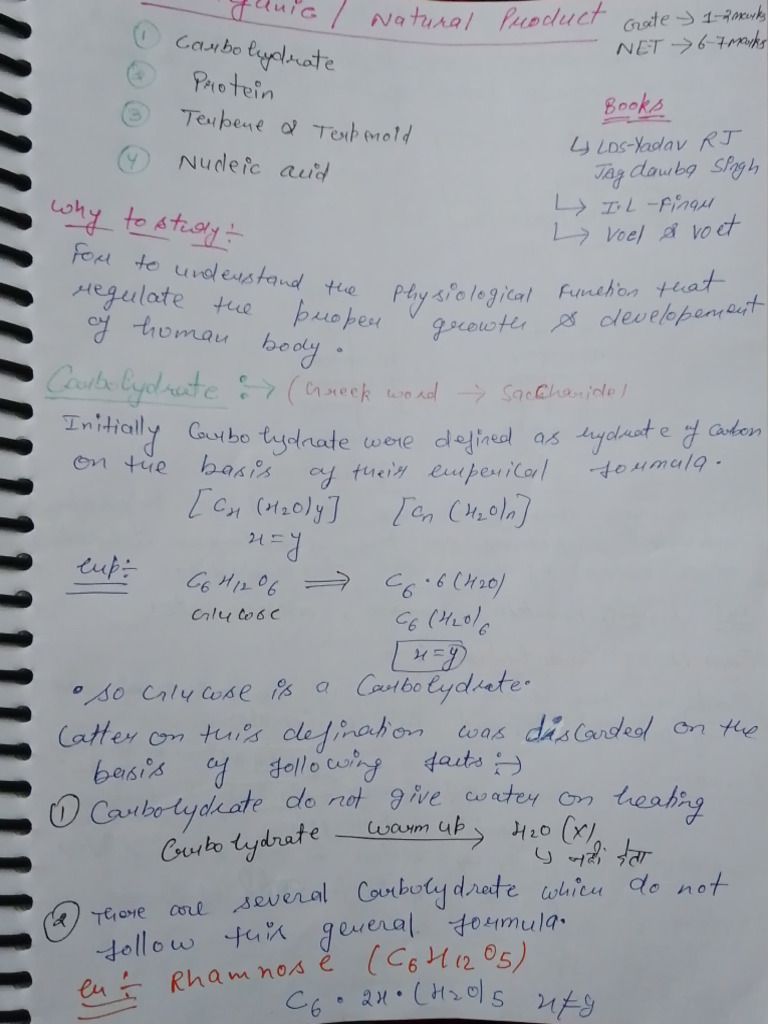 ganic / Natural Product
Gate → 1-2 marks
NET → 6-7 marks
① Carbohydrate
② Protein
③ Terpene & Terpenoid
④ Nucleic acid
Books
↳ LDS-Yadav RJ
Jagdamba Singh
↳ I.L -Finar
↳ Voel & voet
Why to study:-
For to understand the Physiological Function that
regulate the proper growth & developement
of human body.
Carbohydrate :→ (Greek word → Saccharide)
Initially Carbohydrate were defined as hydrate of carbon
on the basis of their emperical formula.
[Cx (H2O)y] [Cn (H2O)n]
x = y
exp:-
C6H12O6 ⟹ C6 · 6(H2O)
Glucose C6 (H2O)6
x = y
• so Glucose is a Carbohydrate.
Latter on this defination was discarded on the
basis of following facts :→
① Carbohydrate do not give water on heating
Carbohydrate warm up → H2O (X)
↳ नहीं देता
② There are several Carbohydrate which do not
follow this general formula.
ex:- Rhamnose (C6H12O5)
C6 · 2H · (H2O)5 x≠y